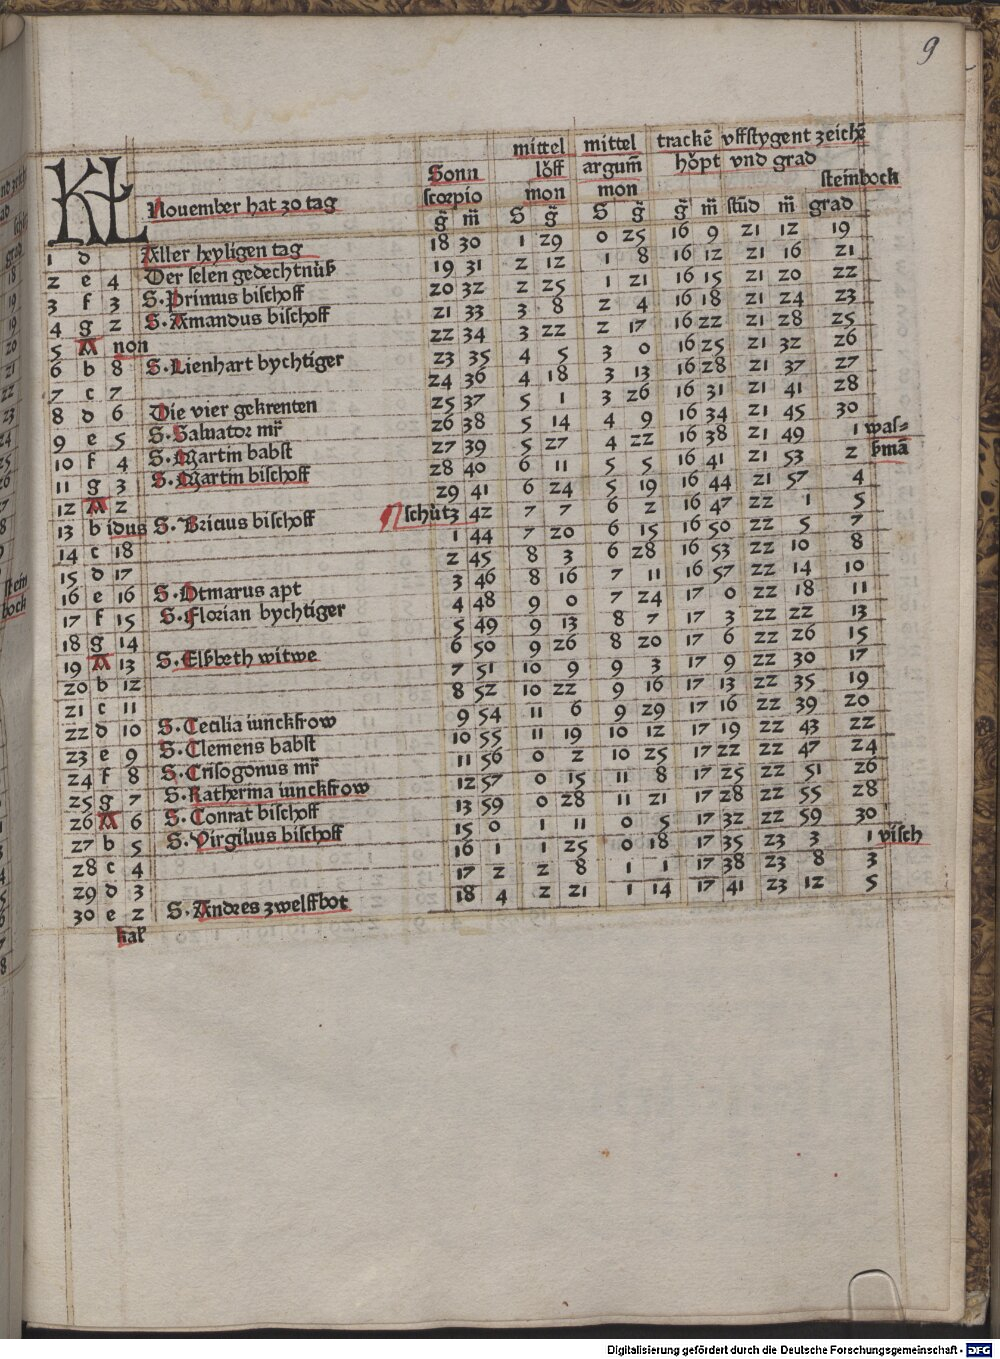 9
mittel mittel trackē vffstygent zeichē
Sonn löff argum̄ höpt vnd grad
KL Nouember hat 30 tag scorpio mon mon steinbock
g̃ m̃ S g̃ S g̃ g̃ m̃ stūd m̃ grad
1 d Aller heyligen tag 18 30 1 29 0 25 16 9 21 12 19
2 e 4 Der selen gedechtnüß 19 31 2 12 1 8 16 12 21 16 21
3 f 3 S. Primus bischoff 20 32 2 25 1 21 16 15 21 20 22
4 g 2 S. Amandus bischoff 21 33 3 8 2 4 16 18 21 24 23
5 A non 22 34 3 22 2 17 16 22 21 28 25
6 b 8 S. Lienhart bychtiger 23 35 4 5 3 0 16 25 21 32 26
7 c 7 24 36 4 18 3 13 16 28 21 37 27
8 d 6 Die vier gekrenten 25 37 5 1 3 26 16 31 21 41 28
9 e 5 S. Saluator mr̃ 26 38 5 14 4 9 16 34 21 45 30
10 f 4 S. Martin babst 27 39 5 27 4 22 16 38 21 49 1 was-
11 g 3 S. Martin bischoff 28 40 6 11 5 5 16 41 21 53 2 ßmā
12 A 2 29 41 6 24 5 19 16 44 21 57 4
13 b idus S. Bricius bischoff schütz 42 7 7 6 2 16 47 22 1 5
14 c 18 1 44 7 20 6 15 16 50 22 5 7
15 d 17 2 45 8 3 6 28 16 53 22 10 8
16 e 16 S. Otmarus apt 3 46 8 16 7 11 16 57 22 14 10
17 f 15 S. Florian bychtiger 4 48 9 0 7 24 17 0 22 18 11
18 g 14 5 49 9 13 8 7 17 3 22 22 13
19 A 13 S. Elßbeth witwe 6 50 9 26 8 20 17 6 22 26 15
20 b 12 7 51 10 9 9 3 17 9 22 30 17
21 c 11 8 52 10 22 9 16 17 13 22 35 19
22 d 10 S. Cecilia iunckfrow 9 54 11 6 9 29 17 16 22 39 20
23 e 9 S. Clemens babst 10 55 11 19 10 12 17 19 22 43 22
24 f 8 S. Crisogonus mr̃ 11 56 0 2 10 25 17 22 22 47 24
25 g 7 S. Katherina iunckfrow 12 57 0 15 11 8 17 25 22 51 26
26 A 6 S. Conrat bischoff 13 59 0 28 11 21 17 28 22 55 28
27 b 5 S. Virgilius bischoff 15 0 1 11 0 5 17 32 22 59 30
28 c 4 16 1 1 25 0 18 17 35 23 3 1 visch
29 d 3 17 2 2 8 1 1 17 38 23 8 3
30 e 2 S. Andres zwelffbot 18 4 2 21 1 14 17 41 23 12 5
kal
Digitalisierung gefördert durch die Deutsche Forschungsgemeinschaft - DFG